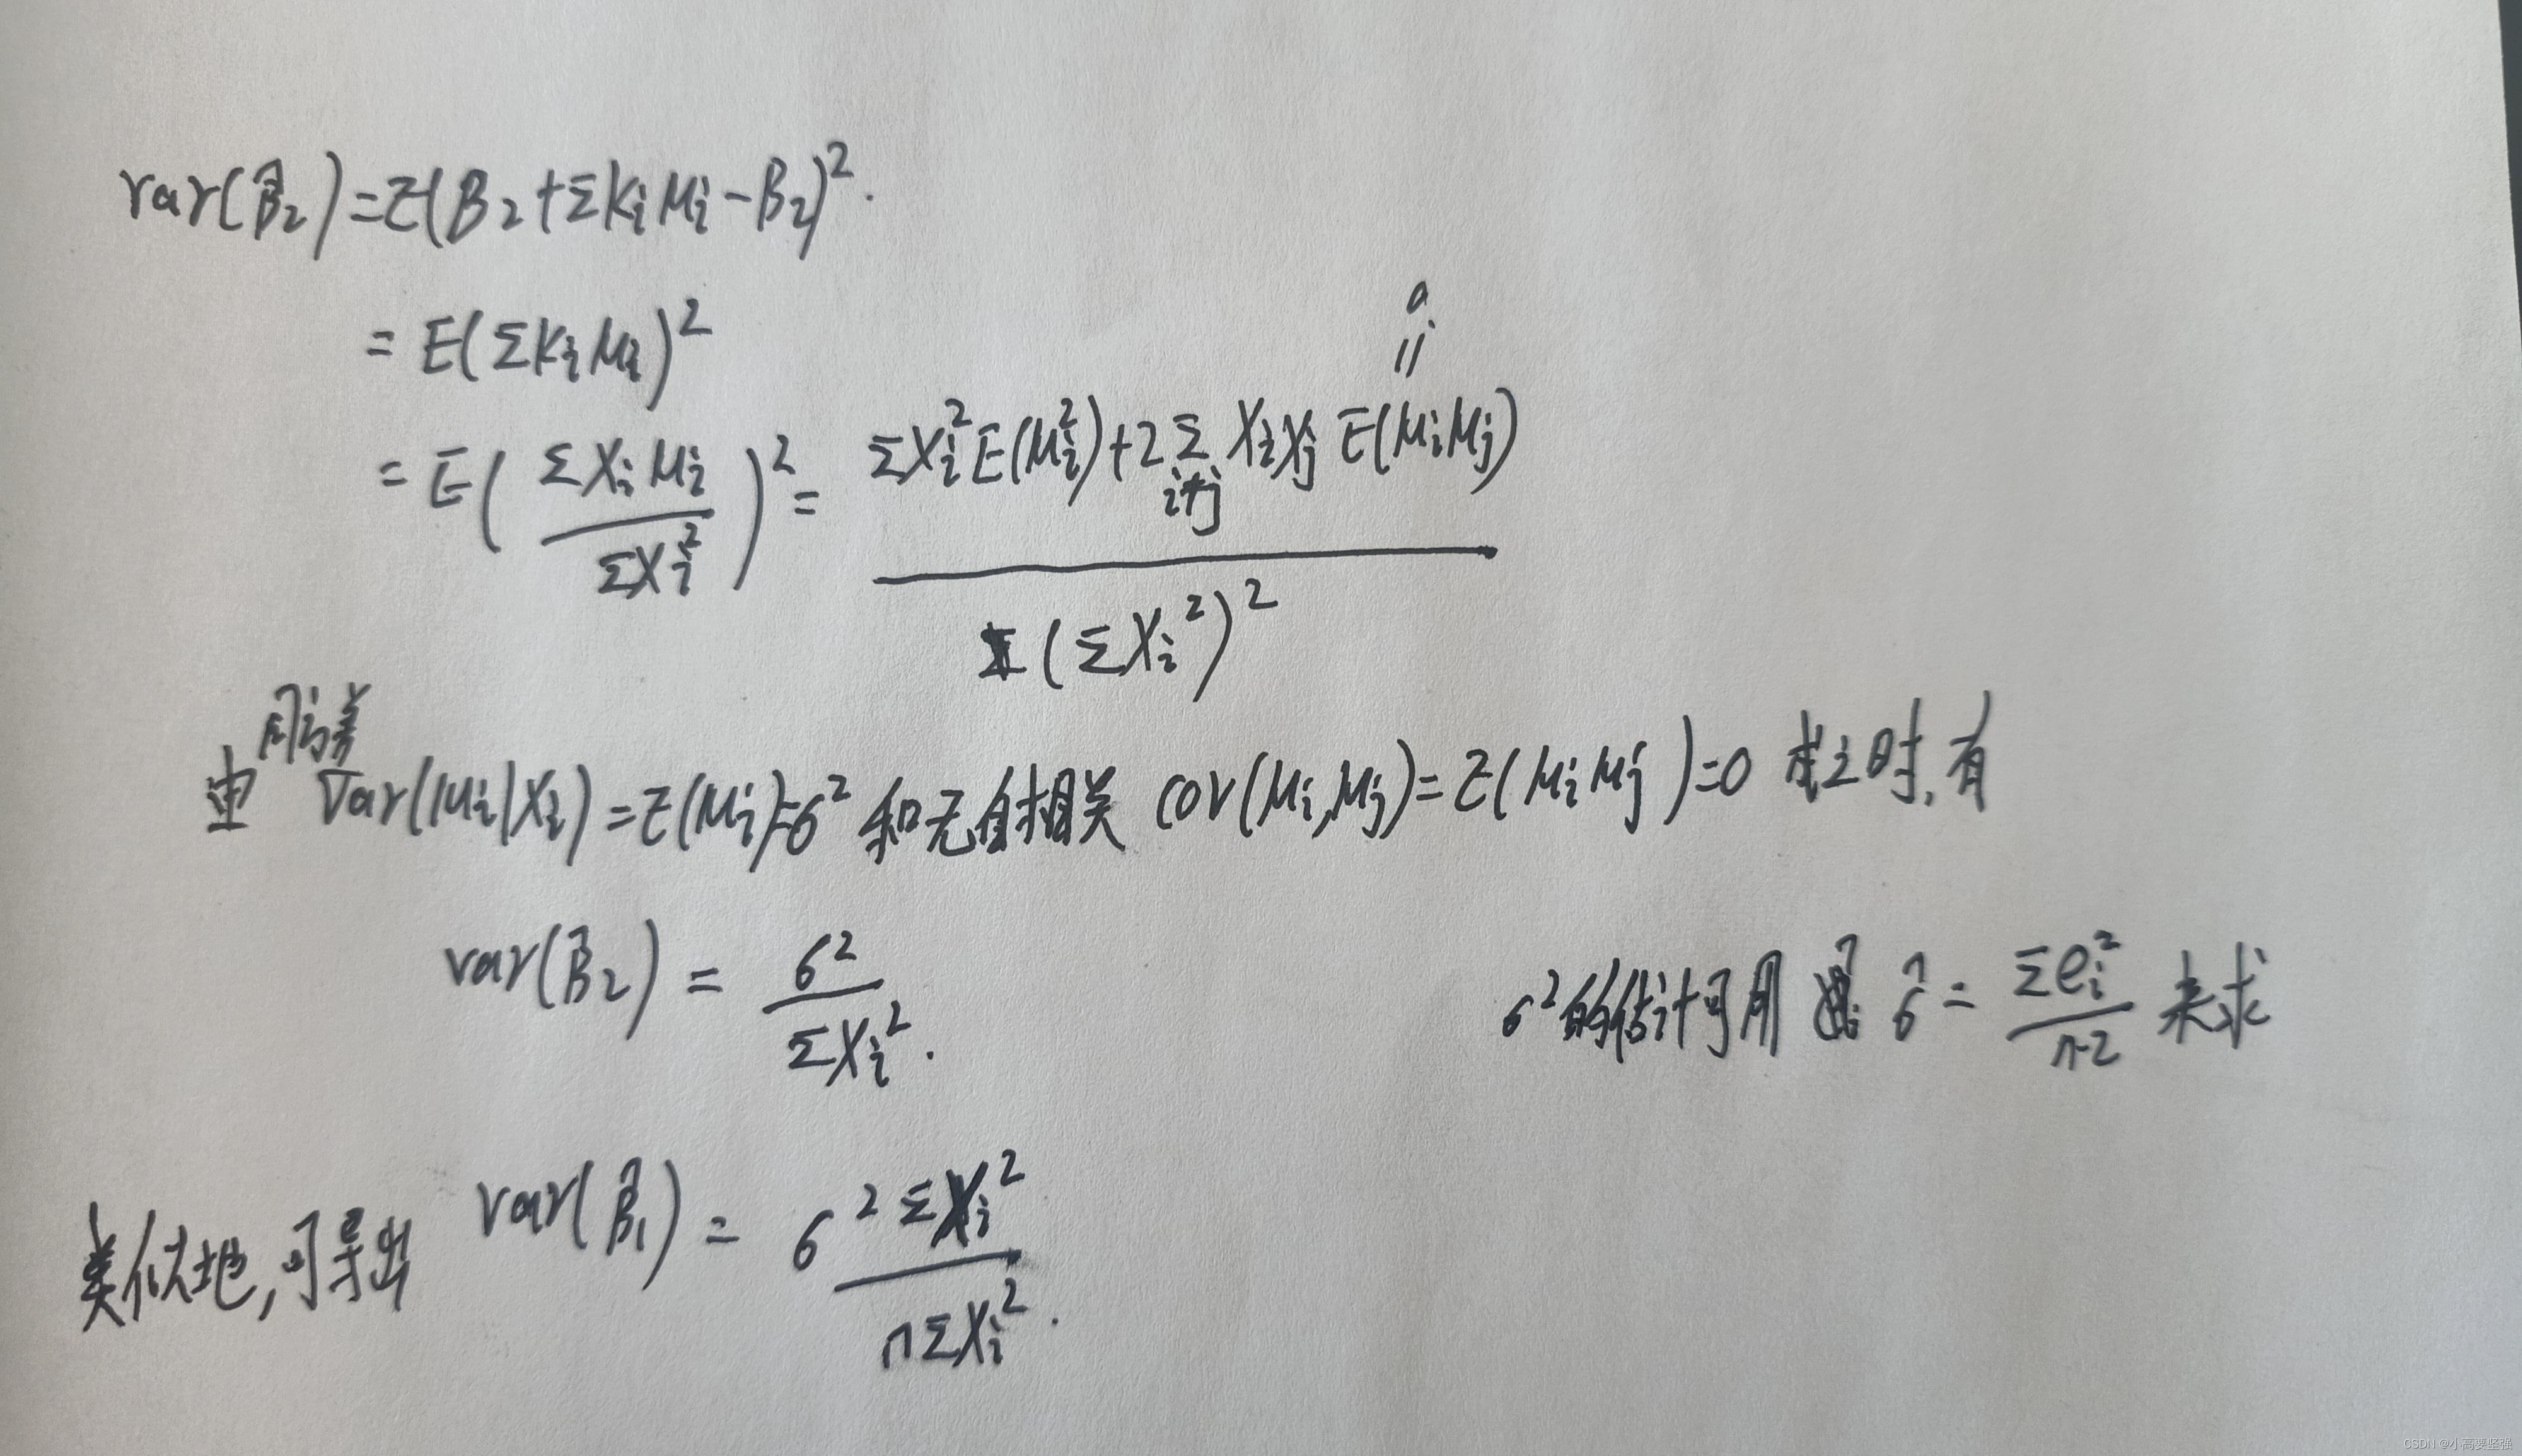 var(β̂₂)=E(β₂+ΣKᵢμᵢ-β₂)².
=E(ΣKᵢμᵢ)²
0
||
=E(ΣXᵢμᵢ/ΣXᵢ²)²=(ΣXᵢ²E(μᵢ²)+2Σ_{i≠j}XᵢXⱼE(μᵢμⱼ))/(ΣXᵢ²)²
同方差
由 Var(μᵢ|Xᵢ)=E(μᵢ)=σ² 和无自相关 cov(μᵢ,μⱼ)=E(μᵢμⱼ)=0 成立时,有
var(β̂₂)=σ²/ΣXᵢ².
σ²的估计可用 σ̂=Σeᵢ²/(n-2) 来求
类似地,可导出 var(β̂₁)=σ² ΣXᵢ²/(nΣXᵢ²).
CSDN @小高要坚强